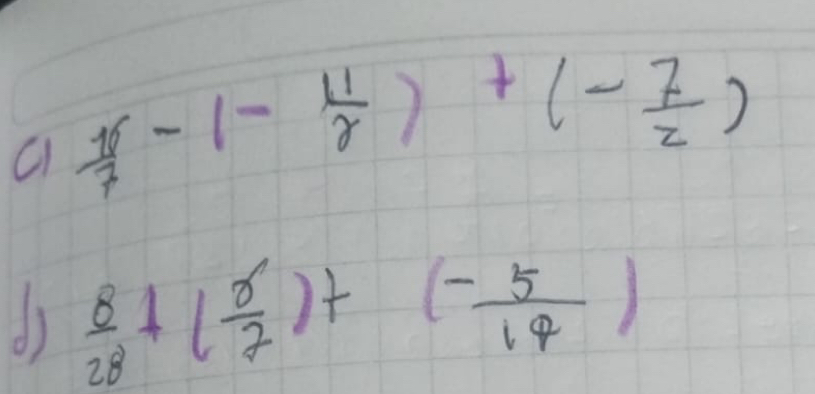 c) 18/7 - (- 11/8) + (- 7/2)
d) 8/28 + (8/7) + (- 5/14)